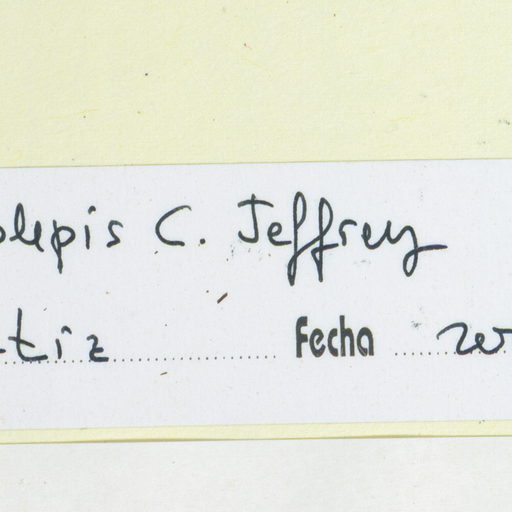 olepis C. Jeffrey
tiz Fecha